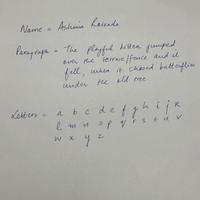 Name = Ashima
Paragraph = The playful kitten jumped
over the terrace/fence and it
fell, when it chased butterflies
under the old tree
Letters = a b c d e f g h i j k
l m n o p q r s t u v
w x y z